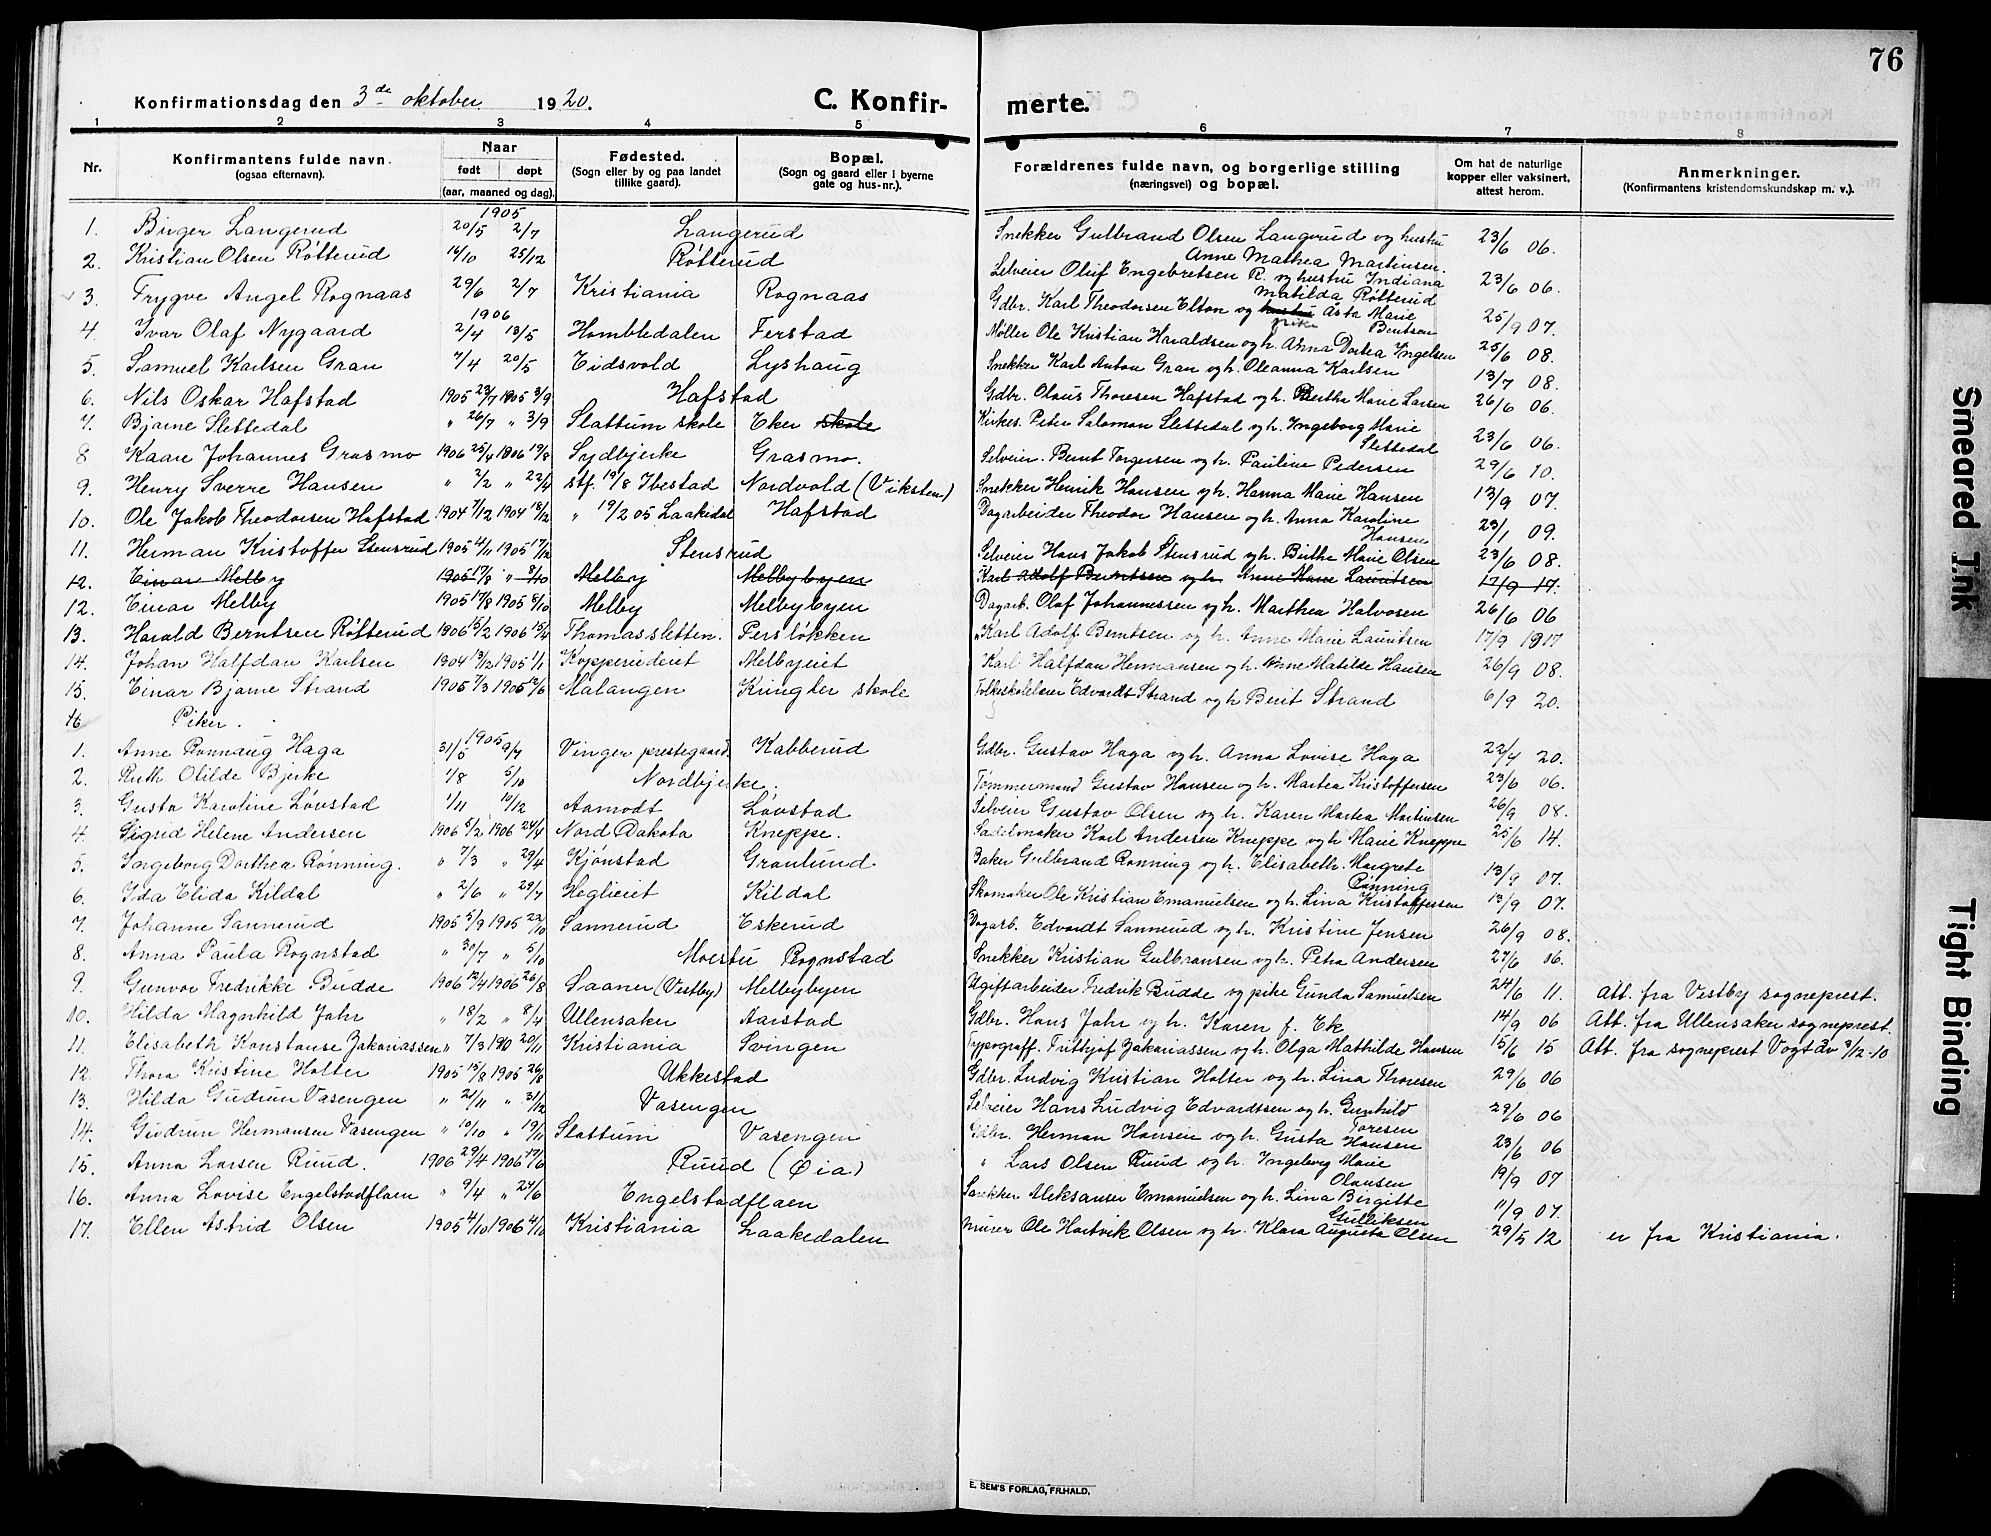 76
Konfirmationsdag den 3de oktober 1920.
C. Konfirmerte.
1 2 3 4 5 6 7 8
Nr. Konfirmantens fulde navn. (ogsaa efternavn). Naar født døpt (aar, maaned og dag). Fødested. (Sogn eller by og paa landet tillike gaard). Bopæl. (Sogn og gaard eller i byerne gate og hus-nr.). Forældrenes fulde navn, og borgerlige stilling (næringsvei) og bopæl. Om hat de naturlige kopper eller vaksinert, attest herom. Anmerkninger. (Konfirmantens kristendomskundskap m. v.).
1905
1. Birger Langerud 20/5 2/7 Langerud Snekker Gulbrand Olsen Langerud og hustru Anne Mathea Martinsen. 23/6 06.
2. Kristian Olsen Røtterud 16/10 25/12 Røtterud Selveier Oluf Engebretsen R. og hustru Indiana Matilda Røtterud 23/6 06.
3. Trygve Angel Rognaas 29/6 2/7 Kristiania Rognaas Gdbr. Karl Theodorsen Elton og hustru pike Asta Marie Bentsen 25/9 07.
1906
4. Ivar Olaf Nygaard 2/4 13/5 Hombledalen Ferstad Møller Ole Kristian Haraldsen og h. Anna Dortea Ingelsen 25/6 08.
5. Samuel Karlsen Gran 7/4 20/5 Eidsvold Lyshaug Snekker Karl Anton Gran og h. Oleanna Karlsen 13/7 08.
6. Nils Oskar Hafstad 1905 23/7 1905 3/9 Hafstad Gdbr. Olaus Thoresen Hafstad og h. Berthe Marie Larsen 26/6 06.
7. Bjarne Slettedal " 26/7 " 3/9 Slattum skole Eker skole Kirkes. Peter Salomon Slettedal og h. Ingeborg Marie Slettedal 23/6 06.
8 Kaare Johannes Grasmo 1906 25/4 1906 19/8 Sydbjerke Grasmo. Selveier. Bernt Torgersen og h. Pauline Pedersen 29/6 10.
9. Henry Sverre Hansen " 2/2 " 22/4 stf. 19/8 Ibestad Nordvold (Viksten) Snekker Henrik Hansen og h. Hanna Marie Hansen 13/9 07.
10. Ole Jakob Theodorsen Hafstad 1904 7/12 1904 18/12 " 19/2 05 Laakedal Hafstad Dagarbeider Theodor Hansen og h. Anna Karoline Hansen 23/1 09.
11. Herman Kristoffer Stensrud 1905 4/11 1905 17/12 Stensrud Selveier Hans Jakob Stensrud og h. Birthe Marie Olsen 23/6 08.
12. Einar Melby 1905 17/8 " 8/10 Melby Melbybyen Karl Adolf Berntsen og h. Anne Marie Lauritsen 17/9 17.
12. Einar Melby 1905 17/8 1905 8/10 Melby Melbybyen Dagarb. Olaf Johannessen og h. Marthea Halvosen 26/6 06
13. Harald Berntsen Røtterud 1906 5/2 1906 15/4 Thomassletten. Persløkken " Karl Adolf Berntsen og h. Anne Marie Lauritsen 17/9 1917
14. Johan Halfdan Karlsen 1904 13/12 1905 1/1 Kopperudeiet Melbyeiet Karl Halfdan Hermansen og h. Anne Matilde Hansen 26/9 08.
15. Einar Bjarne Strand 1905 7/3 1905 12/6 Malangen Kringler skole Folkeskolelærer Edvardt Strand og h Berit Strand 6/9 20.
16 Piker.
1905
1. Anne Rønnaug Haga 31/5 9/7 Vinger prestegaard. Kabberud Gdbr. Gustav Haga og h. Anna Lovise Haga 22/4 20.
2. Ruth Olilde Bjerke 1/8 5/10 Nordbjerke. Tømmermand Gustav Hansen og h. Martea Kristoffersen 23/6 06.
3. Gusta Karoline Løvstad 1/11 10/12 Aamodt Løvstad Selveier Gustav Olsen og h. Karen Martea Martinsen 26/9 08.
4. Sigrid Helene Andersen 1906 5/2 1906 24/4 Nord Dakota Kneppe. Sadelmaker Karl Andersen Kneppe og h Marie Kneppe 25/6 14.
5. Ingeborg Dorthea Rønning. " 7/3 " 29/4 Kjønstad Granlund Baker Gulbrand Rønning og h. Elisabeth. Margrete Rønning 13/9 07.
6. Ida Elida Kildal " 2/6 " 29/7 Heglieiet Kildal Skomaker Ole Kristian Emanuelsen og h. Lina Kristoffersen 13/9 07.
7. Johanne Sannerud 1905 5/9 1905 22/10 Sannerud Eskerud Dagarb. Edvardt Sannerud og h. Kristine Jensen 26/9 08.
8. Anna Paula Rognstad " 30/7 " 5/10 Moestu Rognstad Snekker Kristian Gulbransen og h. Petra Andersen 27/6 06.
9. Gunvor Fredrikke Budde 1906 12/4 1906 26/8 Saaner (Vestby) Melbybyen Ugift arbeider Fredrik Budde og pike Gunda Samuelsen 24/6 11. Att. fra Vestby sogneprest.
10. Hilda Magnhild Jahr " 18/2 " 8/4 Ullensaker Aarstad Gdbr. Hans Jahr og h. Karen f. Ek 14/9 06 Att. fra Ullensaker sogneprest.
11. Elisabeth Konstanse Zakariassen " 7/3 1910 20/11 Kristiania Svingen Typograff. Frithjof Zakariassen og h. Olga Mathilde Hansen 15/6 15 Att. fra sogneprest Vogt av 3/12-10
12. Thora Kristine Holter 1905 15/8 1905 26/8 Ukkestad Gdbr. Ludvig Kristian Holter og h. Lina Thoresen 29/6 06
13. Hilda Gudrun Vasengen " 21/11 " 31/12 Vasengen Selveier Hans Ludvig Edvardtsen og h. Gunhild Toresen 29/6 06
14. Gudrun Hermansen Vasengen " 10/10 " 19/11 Slattum Vasengen Gdbr. Herman Hansen og h. Gusta Hansen 23/6 06
15. Anna Larsen Ruud. 1906 29/4 1906 17/6 Ruud (Øia) " Lars Olsen Ruud og h. Ingeborg Marie Olausen 19/9 07
16. Anna Lovise Engelstadflaen " 9/4 " 24/6 Engelstadflaen Snekker Aleksanser Emanuelsen og h. Lina Birgitte Gulliksen 11/9 07.
17. Ellen Astrid Olsen 1905 4/10 1906 4/10 Kristiania Laakedalen Murer Ole Hartvik Olsen og h. Klara Augusta Olsen 29/5 12 er fra Kristiania.
E. SEM'S FORLAG, FR.HALD.
Smeared Ink
Tight Binding